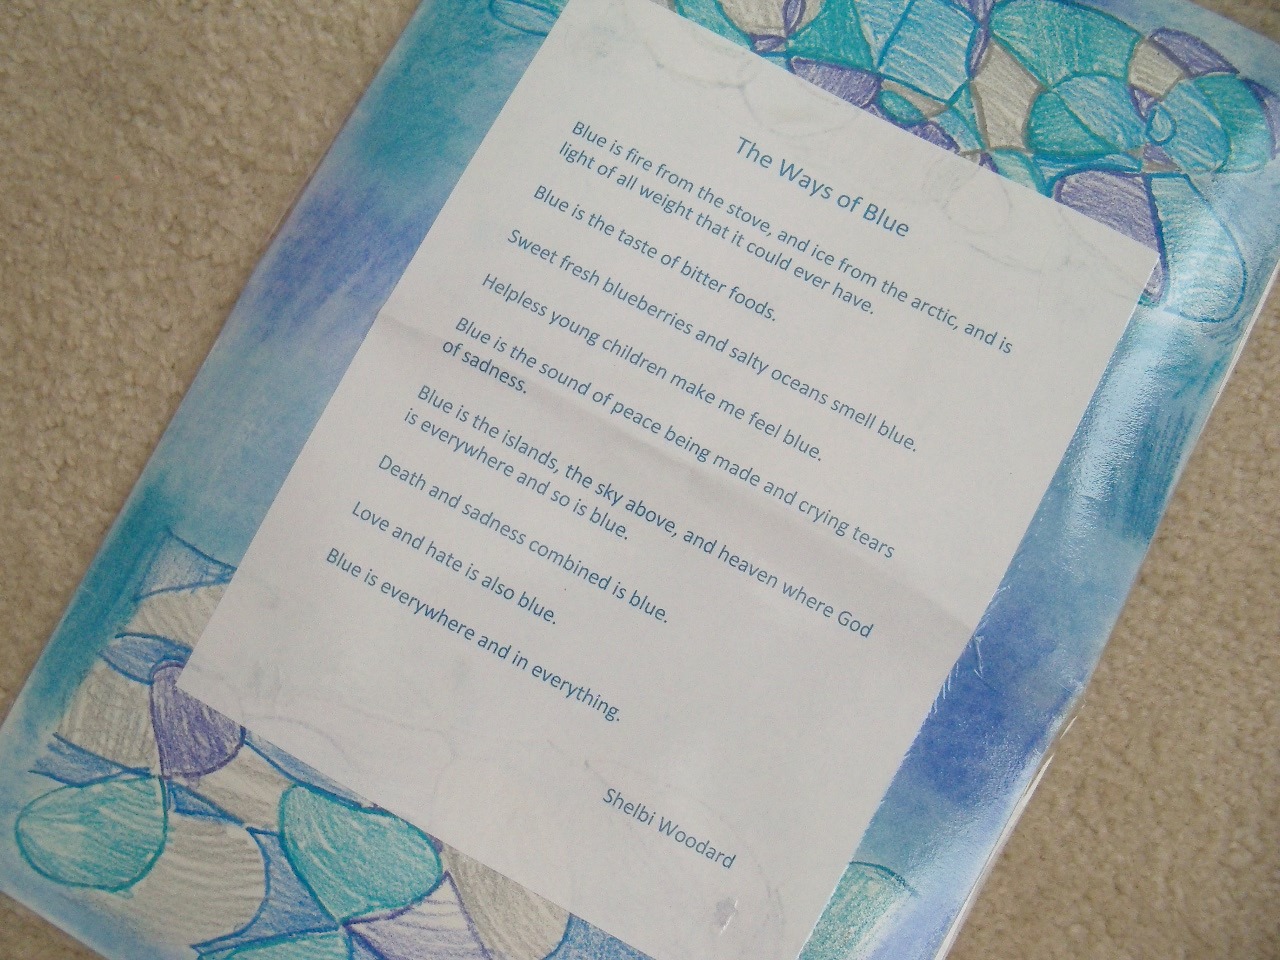 The Ways of Blue
Blue is fire from the stove, and ice from the arctic, and is
light of all weight that it could ever have.
Blue is the taste of bitter foods.
Sweet fresh blueberries and salty oceans smell blue.
Helpless young children make me feel blue.
Blue is the sound of peace being made and crying tears
of sadness.
Blue is the islands, the sky above, and heaven where God
is everywhere and so is blue.
Death and sadness combined is blue.
Love and hate is also blue.
Blue is everywhere and in everything.
Shelbi Woodard